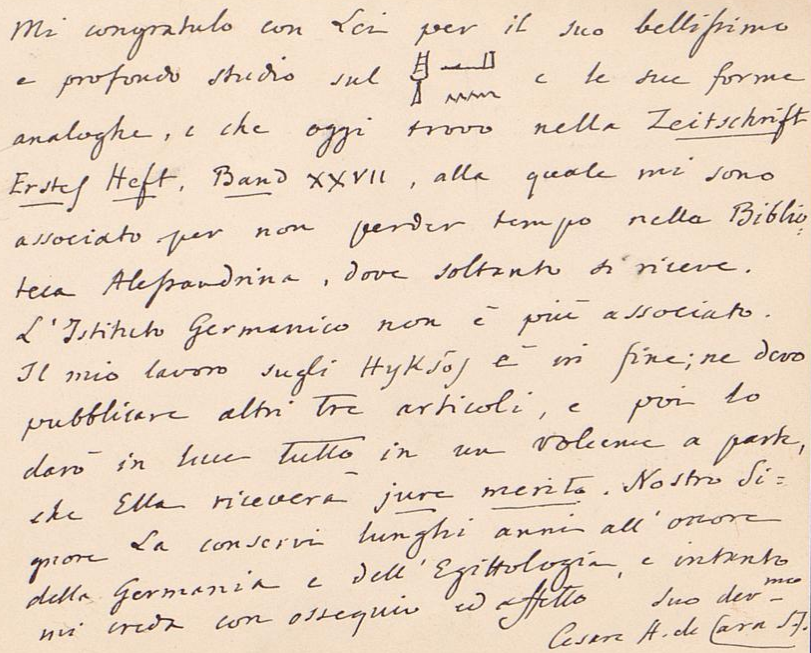 Mi congratulo con Lei per il suo bellissimo
e profondo studio sul e le sue forme
analoghe, e che oggi trovo nella Zeitschrift
Erstes Heft, Band XXVII, alla quale mi sono
associato per non perder tempo nella Biblio
teca Alessandrina, dove soltanto si riceve.
L'Istituto Germanico non è più associato.
Il mio lavoro sugli Hyksôs è in fine; ne devo
pubblicare altri tre articoli, e poi lo
darò in luce tutto in un volume a parte,
che Ella riceverà jure merito. Nostro Si=
gnore La conservi lunghi anni all'onore
della Germania e dell'Egittologia, e intanto
mi creda con ossequio ed affetto suo dev.mo
Cesare A. de Cara S.J.